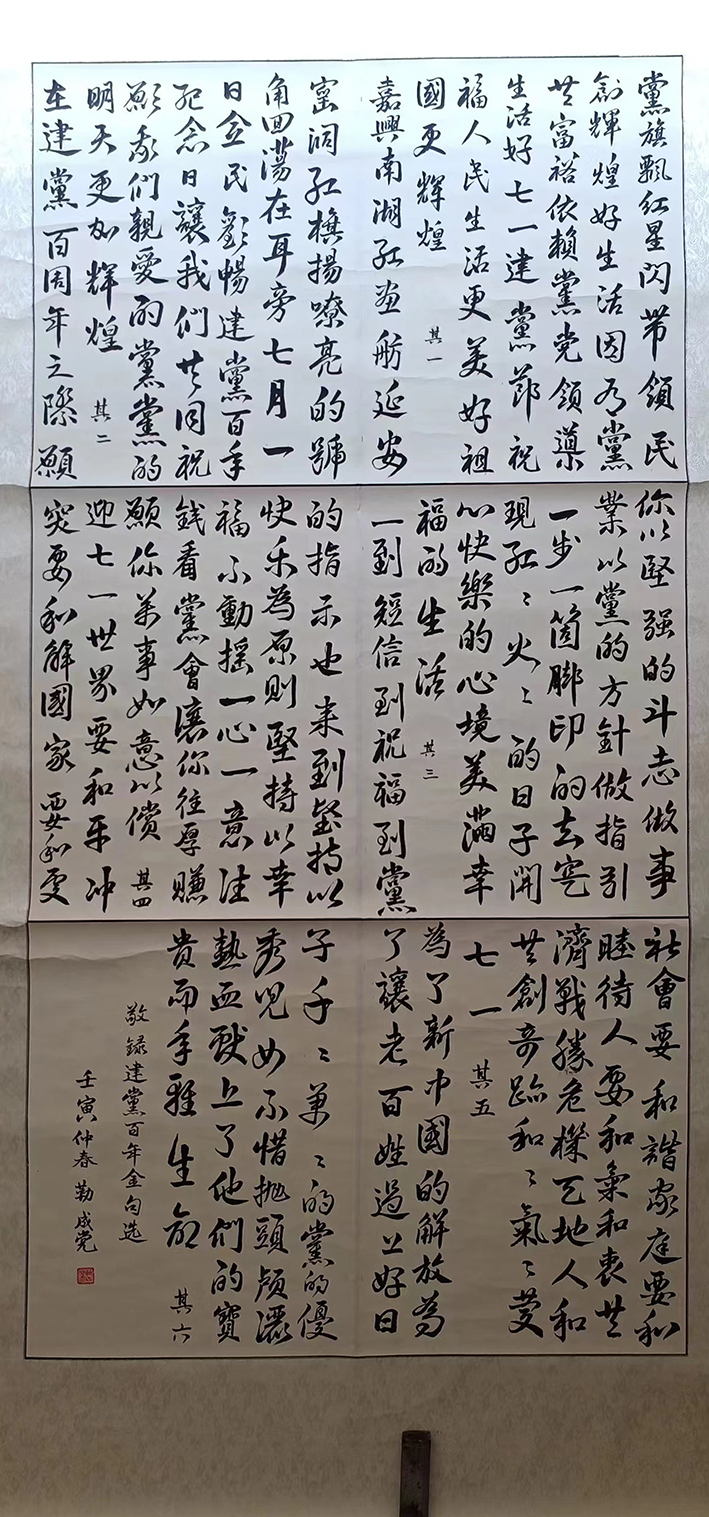 黨旗飄红星闪帶領民
創輝煌好生活因为黨
共富裕依賴黨党領導
生活好七一建黨節祝
福人民生活更美好祖
國更輝煌 其一
嘉興南湖红画舫延安
窑洞红旗揚嘹亮的號
角回荡在耳旁七月一
日全民歡暢建黨百年
纪念日讓我們共同祝
願我們親愛的黨黨的
明天更加輝煌 其二
在建黨百周年之際願
你以堅强的斗志做事
業以黨的方針做指引
一步一箇脚印的去寔
現红〻火〻的日子開
心快樂的心境美滿幸
福的生活 其三
一到短信到祝福到黨
的指示也来到坚持以
快乐為原则堅持以幸
福不動摇一心一意往
錢看黨會讓你往厚賺
願你萬事如意以償 其四
迎七一世界要和平冲
突要和解國家要和更
社會要和諧家庭要和
睦待人要和氣和衷共
濟戰勝危機天地人和
共創奇跡和〻氣〻慶
七一 其五
為了新中國的解放為
了讓老百姓過上好日
子千〻萬〻的黨的優
秀兒女不惜抛頭颅灑
熱血献上了他們的寶
贵而年轻生命 其六
敬録建黨百年金句选
壬寅仲春 成党